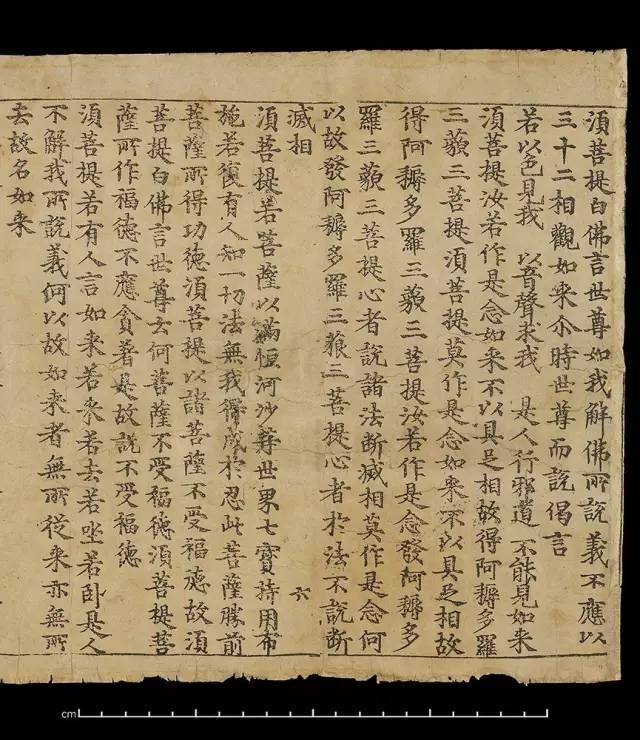 須菩提白佛言世尊如我解佛所說義不應以
三十二相觀如來尒時世尊而說偈言
若以色見我 以音聲求我 是人行邪道 不能見如来
須菩提汝若作是念如来不以具足相故得阿耨多羅
三藐三菩提須菩提莫作是念如来不以具足相故
得阿耨多羅三藐三菩提汝若作是念發阿耨多
羅三藐三菩提心者說諸法断滅相莫作是念何
以故發阿耨多羅三藐三菩提心者於法不說断
滅相
須菩提若菩薩以滿恒河沙等世界七寶持用布
六
施若復有人知一切法無我得成於忍此菩薩勝前
菩薩所得功德須菩提以諸菩薩不受福德故須
菩提白佛言世尊云何菩薩不受福德須菩提菩
薩所作福德不應貪著是故說不受福德
須菩提若有人言如来若来若去若坐若卧是人
不解我所說義何以故如来者無所従来亦無所
去故名如来
cm